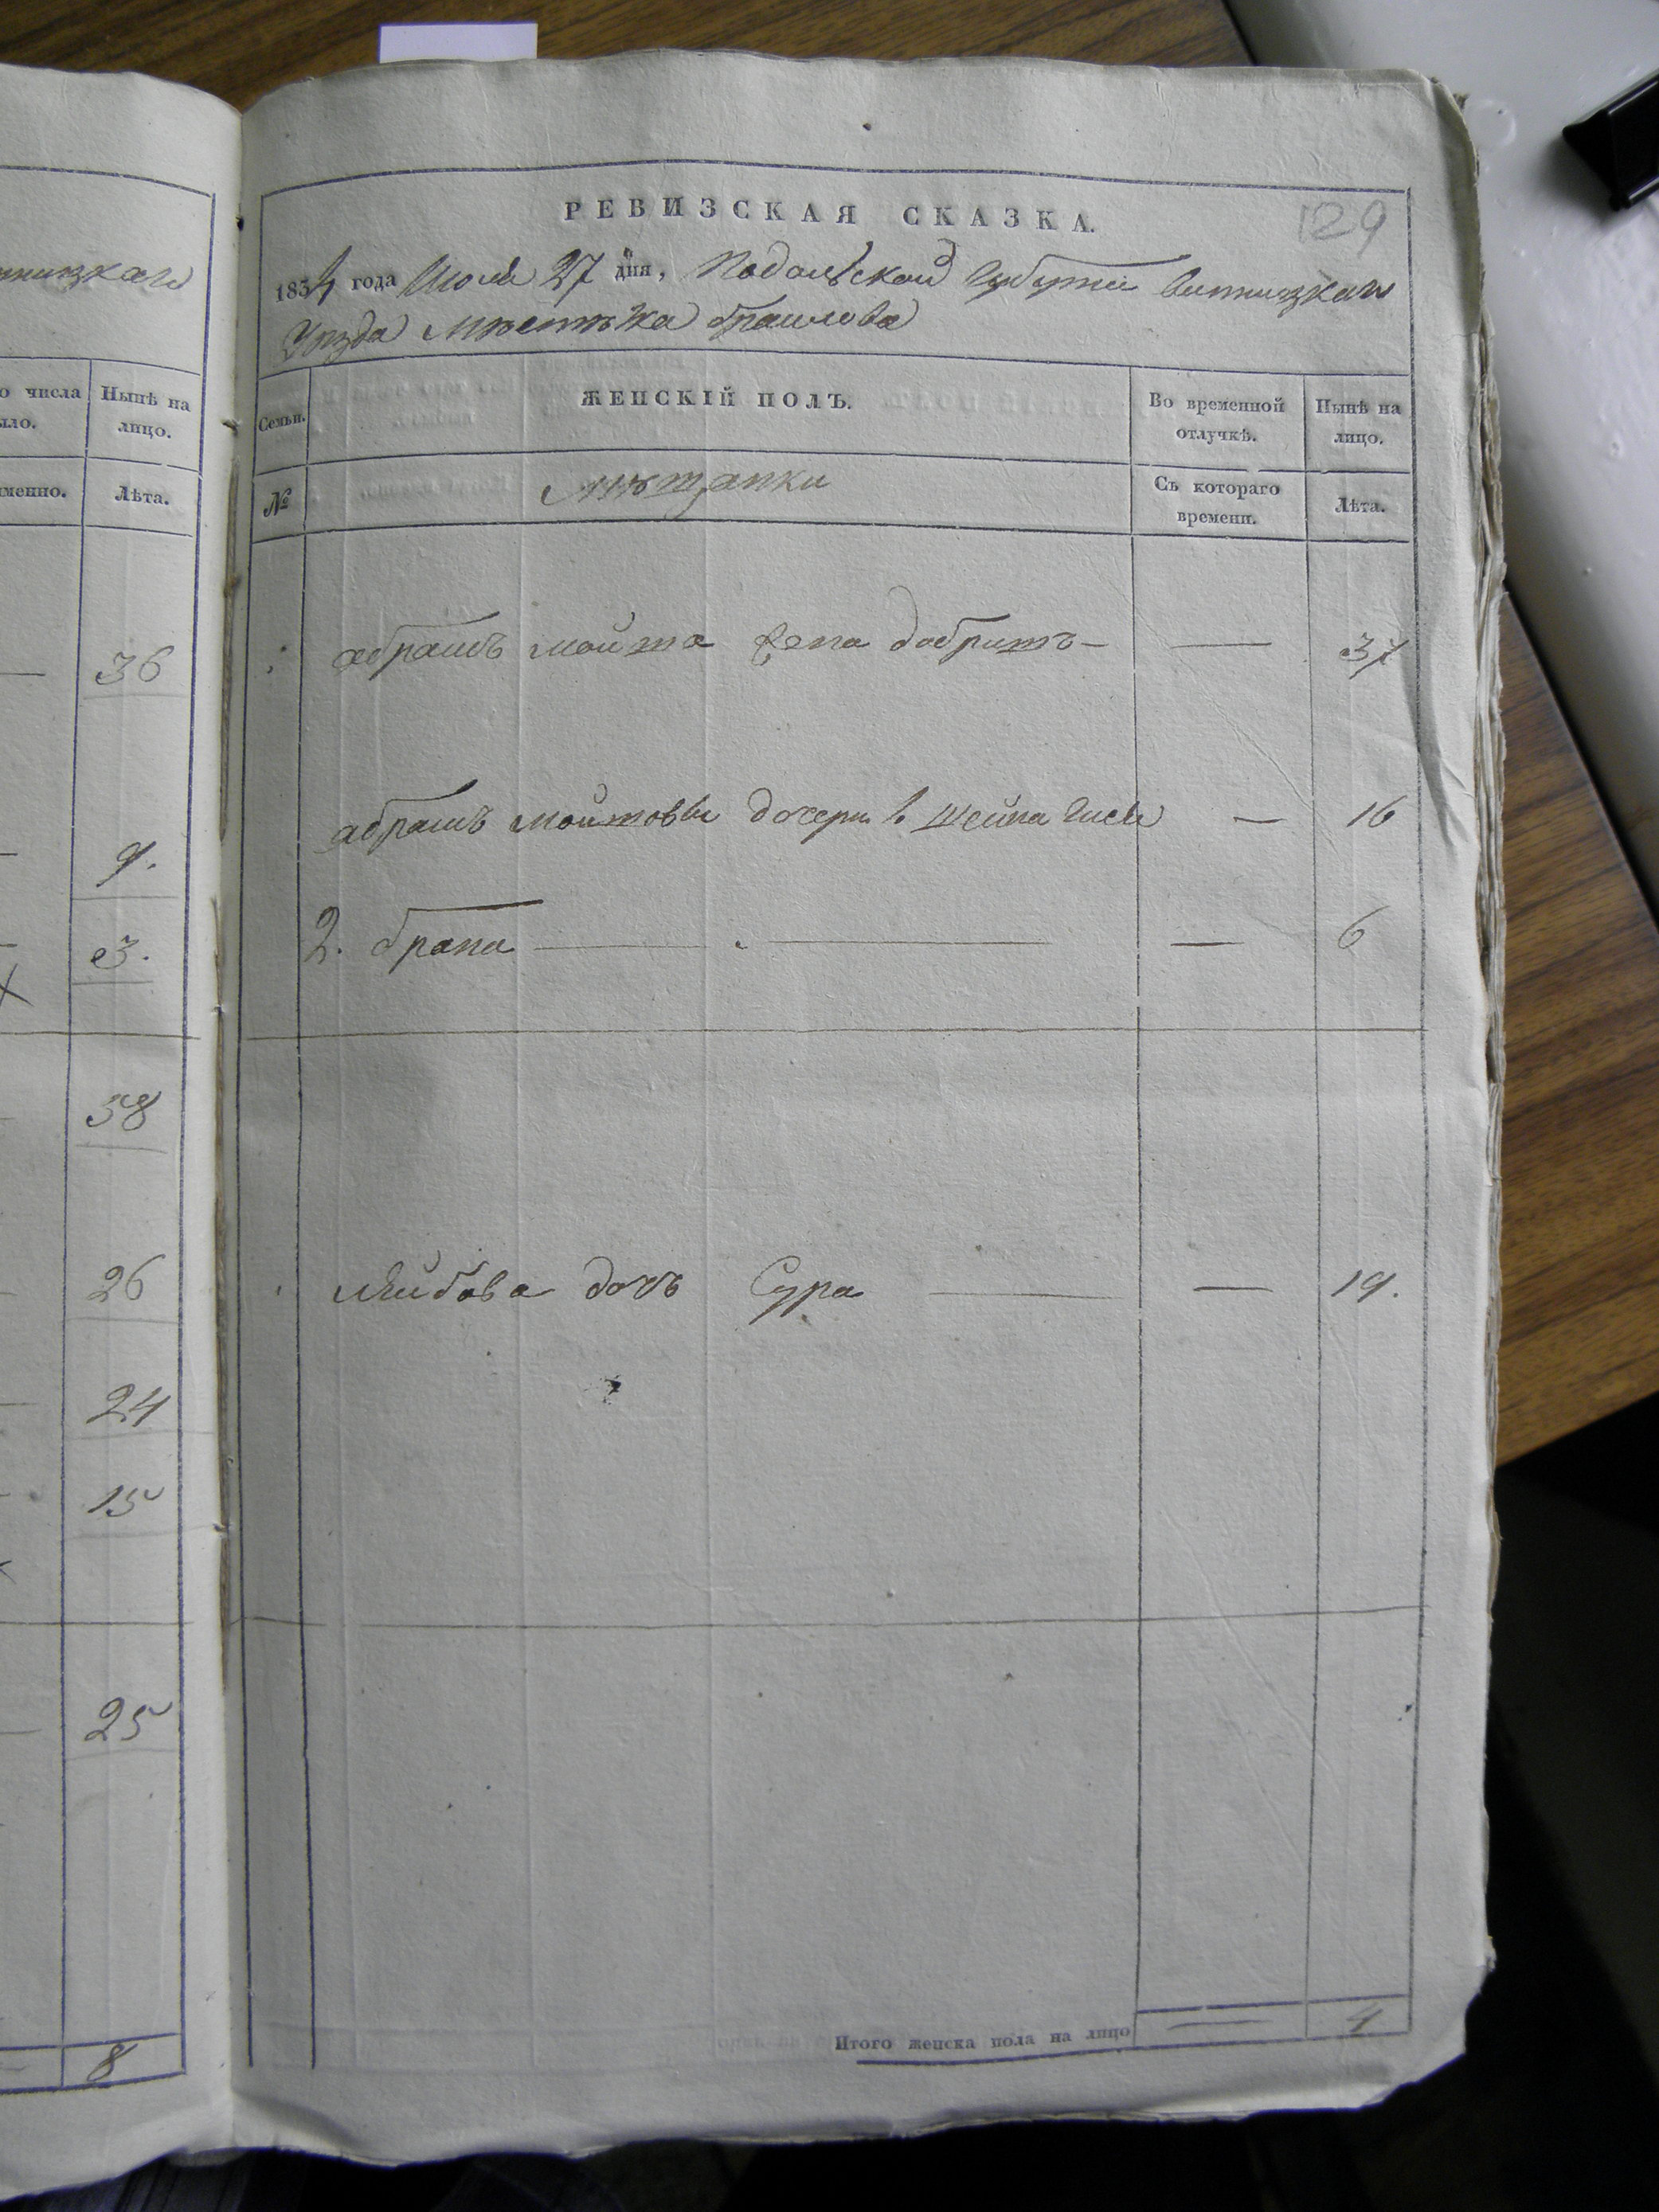 ницкаго
о числа
ыло.
Нынѣ на
лицо.
именно.
Лѣта.
36
9.
3.
58
26
24
15
25
8
129
РЕВИЗСКАЯ СКАЗКА.
1834 года Июля 27 дня, Подольской Губернии Винницкаго
Уезда Местечка Браилова
Семьи.
ЖЕНСКІЙ ПОЛЪ.
Во временной
отлучкѣ.
Нынѣ на
лицо.
№
Мѣщанки
Съ котораго
времени.
Лѣта.
абрамъ мошка жена добришъ — — 37
абрамъ мошковы дочери 1 Шейна Гися — 16
2. брана — — 6
Лейбова дочь Сура — — 19.
Итого женска пола на лицо — 4